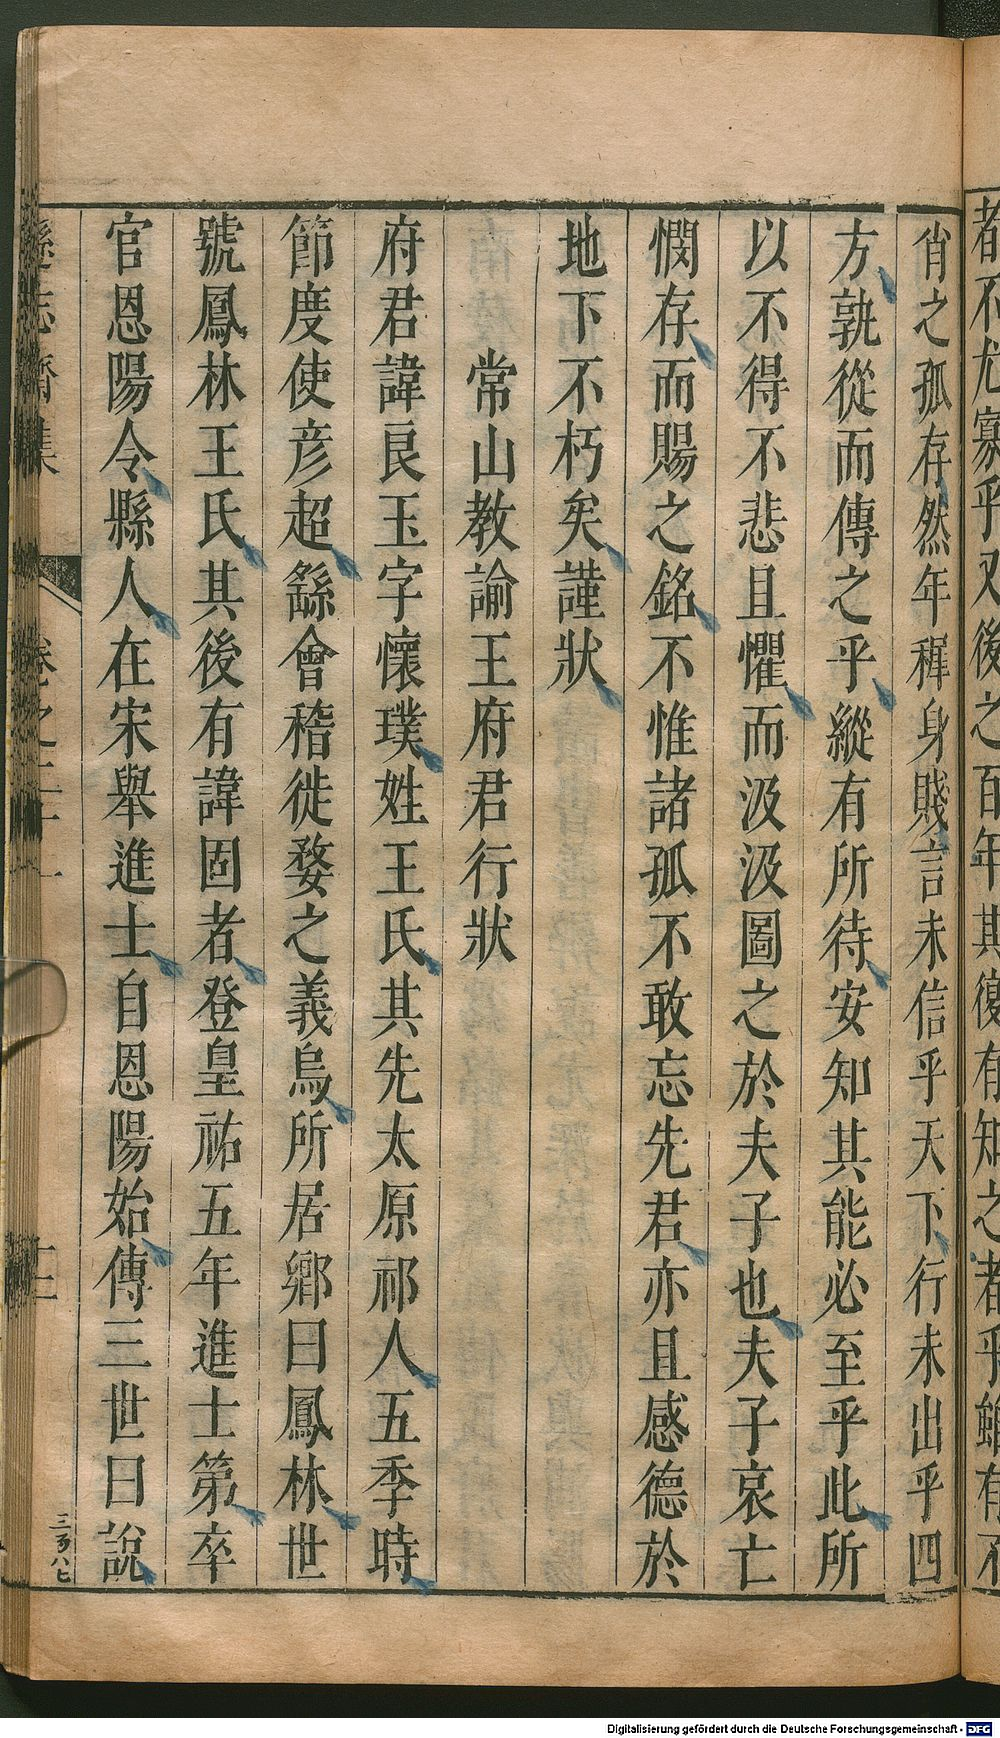 都不尤寡乎又後之百年其復有知之者乎雖有不
肖之孤存然年穉身賤言未信乎天下行未出乎四
方孰從而傳之乎縱有所待安知其能必至乎此所
以不得不悲且懼而汲汲圖之於夫子也夫子哀亡
憫存而賜之銘不惟諸孤不敢忘先君亦且感德於
地下不朽矣謹狀
常山教諭王府君行狀
府君諱良玉字懷璞姓王氏其先太原祁人五季時
節度使彦超繇會稽徙婺之義烏所居鄉曰鳳林世
號鳳林王氏其後有諱固者登皇祐五年進士第卒
官恩陽令縣人在宋舉進士自恩陽始傳三世曰說
遜志齋集
卷之二十一
三百八七
Digitalisierung gefördert durch die Deutsche Forschungsgemeinschaft - DFG